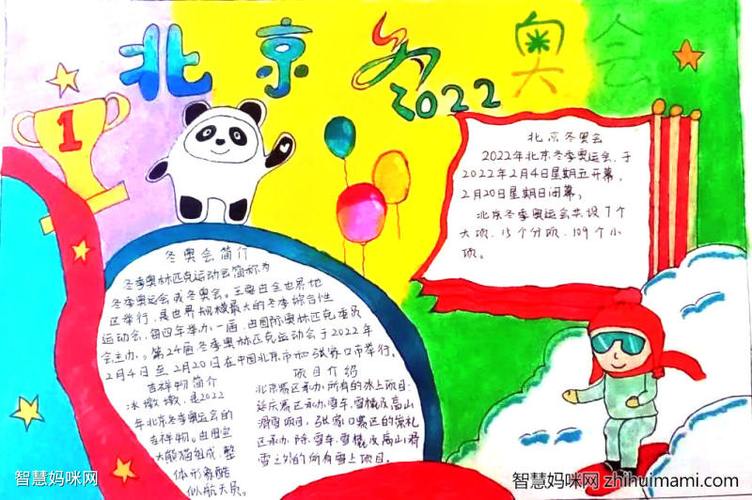 北京冬奥会
2022
1
北京冬奥会
2022年北京冬季奥运会,于
2022年2月4日星期五开幕,
2月20日星期日闭幕。
北京冬季奥运会共设7个
大项,15个分项,109个小
项。
冬奥会简介
冬季奥林匹克运动会简称为
冬季奥运会或冬奥会。主要由全世界地
区举行,是世界规模最大的冬季综合性
运动会,每四年举办一届,由国际奥林匹克委员
会主办。第24届冬季奥林匹克运动会于2022年
2月4日至2月20日在中国北京市和张家口市举行。
吉祥物简介
冰墩墩,是2022
年北京冬季奥运会的
吉祥物。由国宝
大熊猫组成,整
体形象酷
似航天员。
项目介绍
北京赛区承办所有的冰上项目;
延庆赛区承办雪车、雪橇及高山
滑雪项目;张家口赛区的崇礼
区承办除雪车、雪橇及高山滑
雪之外的所有雪上项目。
智慧妈咪网
智慧妈咪网 zhihuimami.com